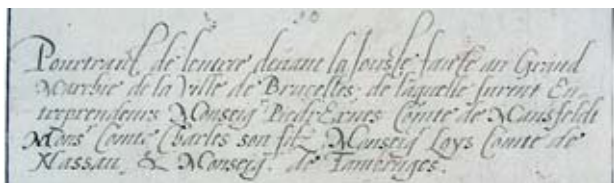 Pourtraict de leuvre devant la Jouste faicte au Grand
Marchie de la Ville de Bruxelles, de laquelle furent En-
treprendeurs Monseigr. Piedr Ernes Comte de Mansfeldt
Monsr Comte Charles son filz, Monseigr Loys Comte de
Nassau, & Monseigr. de Tambruges.